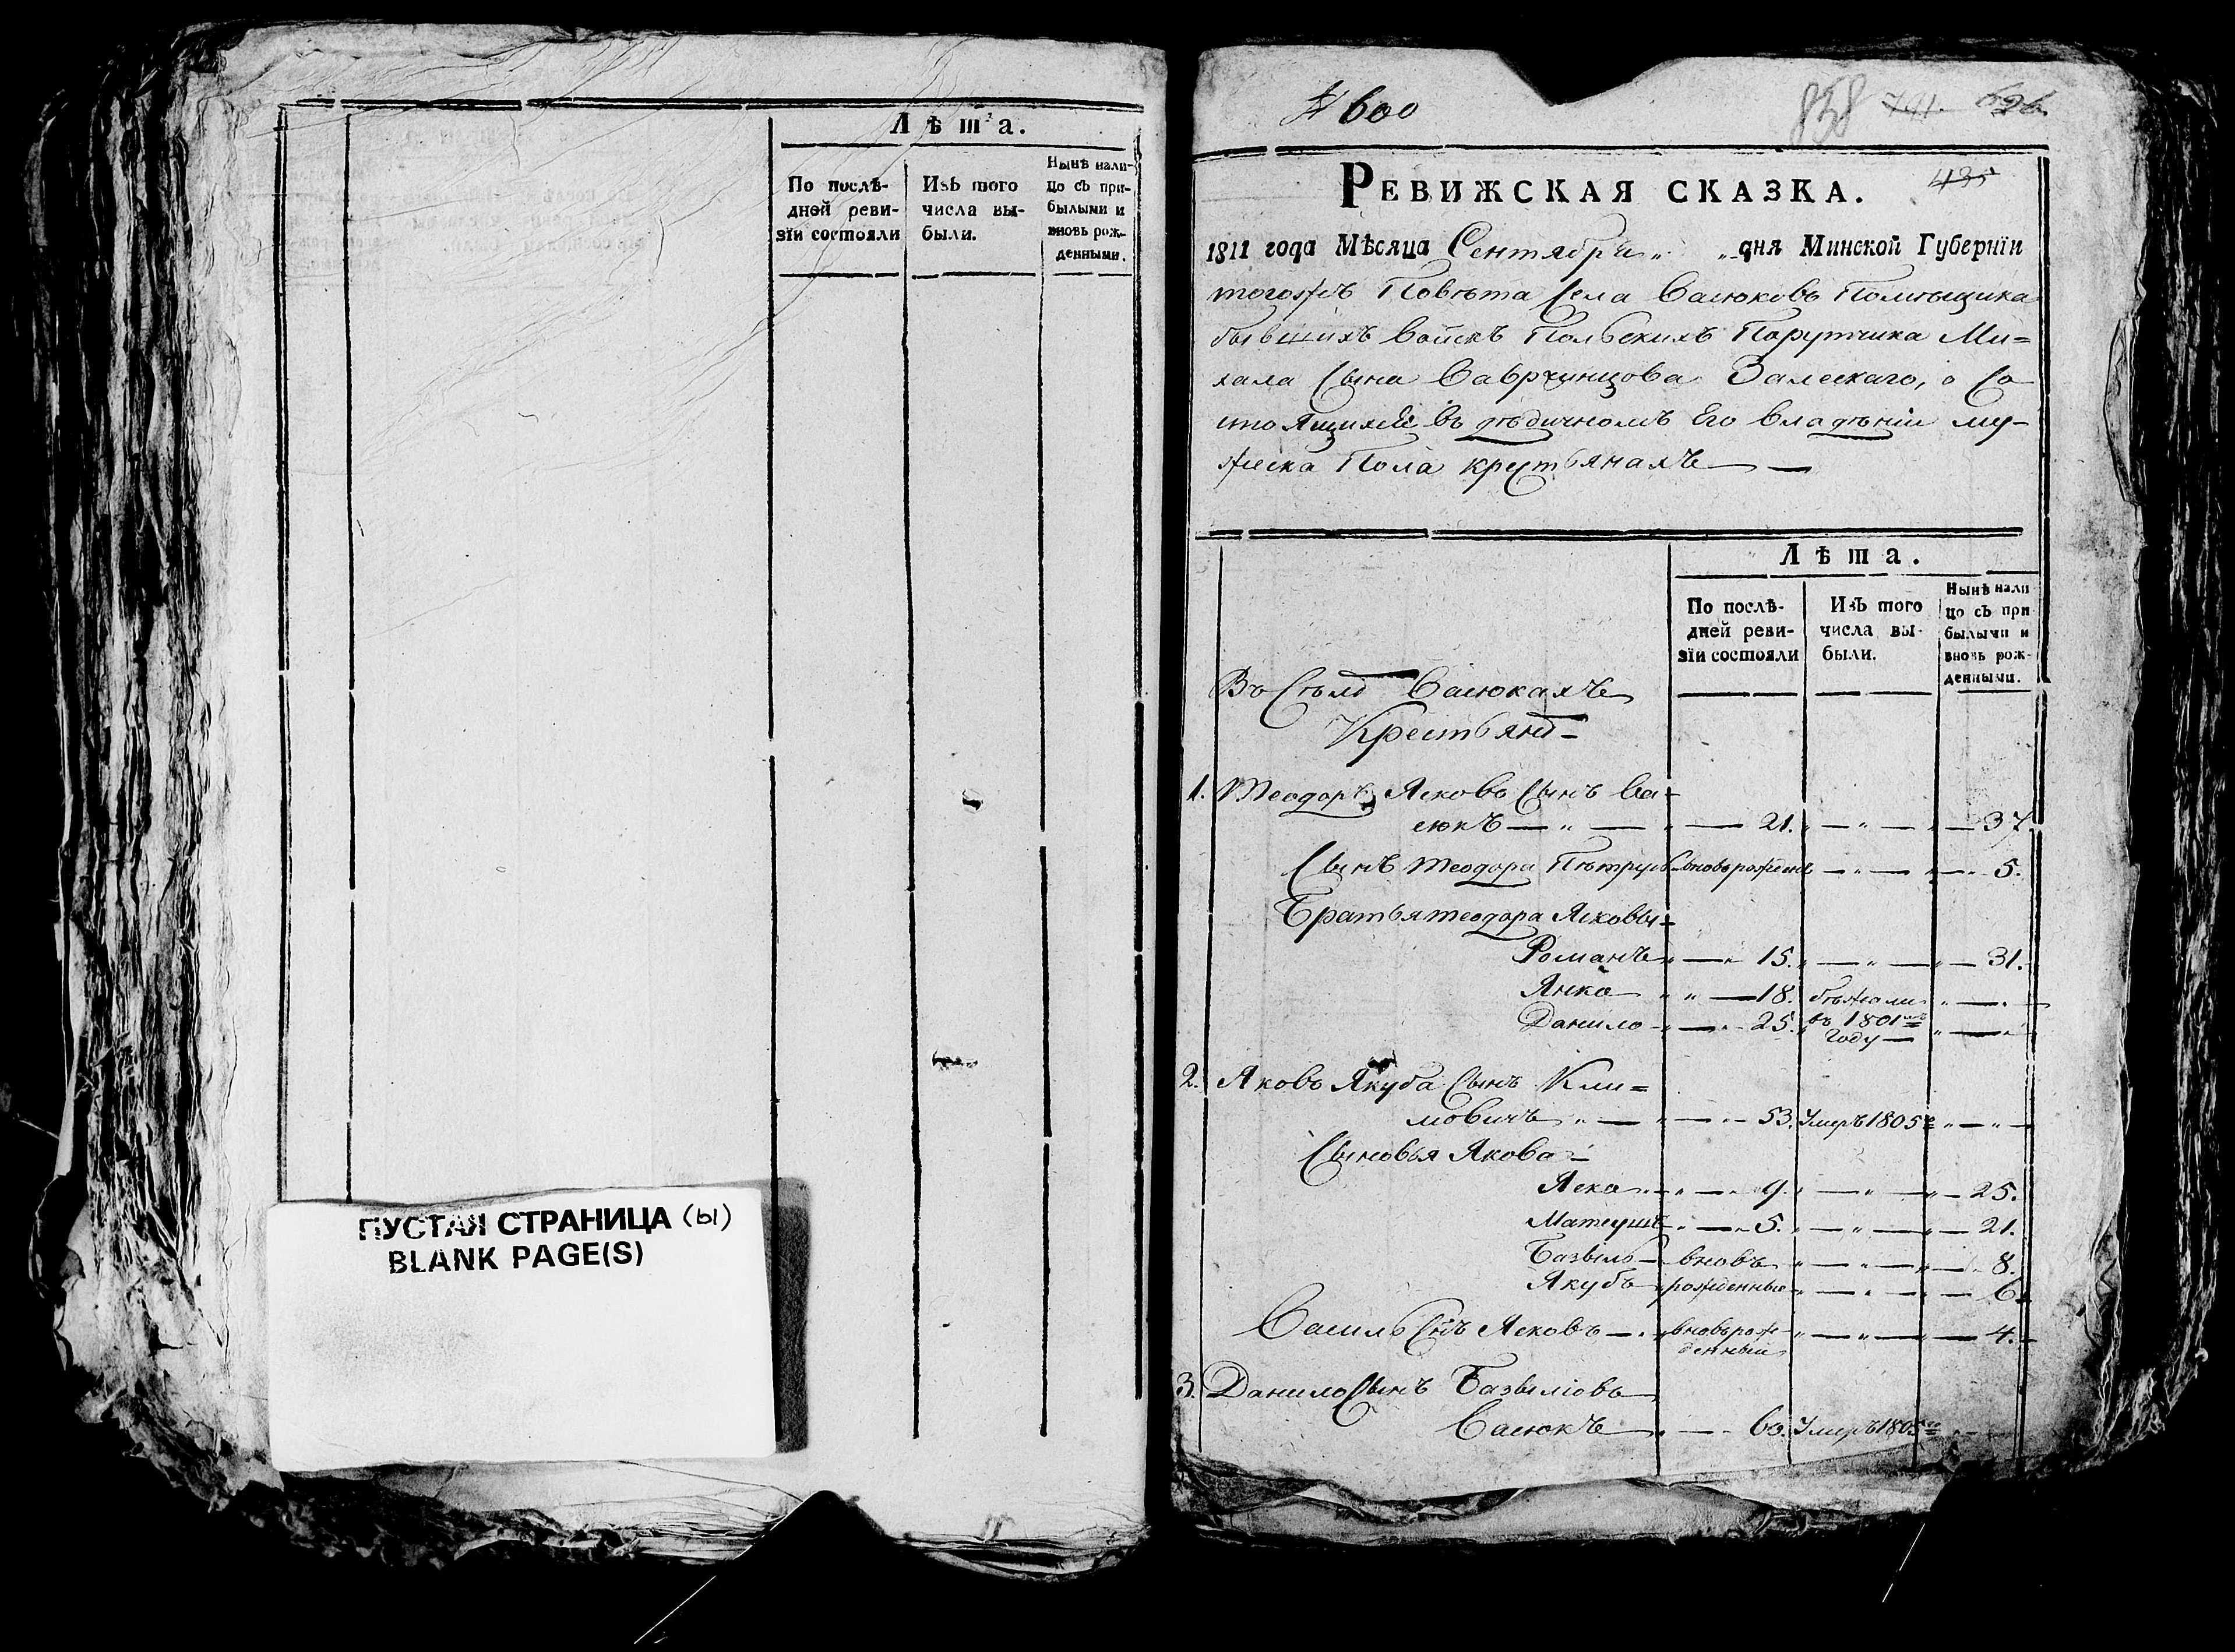 Лѣта.
По послѣ-
дней реви-
зїи состояли
Изъ того
числа вы-
были.
Нынѣ нали-
цо съ при-
былыми и
вновь рож-
денными.
ПУСТАЯ СТРАНИЦА (ы)
BLANK PAGE(S)
600
858 741.
435
РЕВИЖСКАЯ СКАЗКА.
1811 года Мѣсяца Сентября „ „ дня Минской Губернїи
тогожъ Повѣта Села Васюковъ Помѣщика
бывшихъ Войскъ Польскихъ Порутчика Ми=
хала Сына Залескаго, о Со
стоящихъ въ дѣдичномъ Его владѣніи му-
жеска Пола крестьянахъ —
Лѣта.
По послѣ-
дней реви-
зїи состояли
Изъ того
числа вы-
были.
Нынѣ нали
цо съ при
былыми и
вновь рож-
денными.
Въ Селѣ Васюкахъ
Крестьянѣ
1. Теодоръ Ясковъ Сынъ Ва=
сюкъ — 21. — 37
Сынъ Теодора Пѣтрукъ вновьрожденъ — 5.
Братья теодора Ясковы
Романъ — 15. — 31.
Янко — 18. бѣжали —
Данило — 25. въ 1801мъ —
году —
2. Яковъ Якуба Сынъ Кли=
мовичъ — 53. Умеръ 1805 —
Сыновья Якова
Яско — 9. — 25.
Матеушъ — 5. — 21.
Базыль — вновь — 8.
Якубъ рожденные — 6.
Василь Снъ Ясковъ — вновьрож= — 4.
денный
3. Данило Сынъ Базыліовъ
Васюкъ — 60. Умеръ 1805